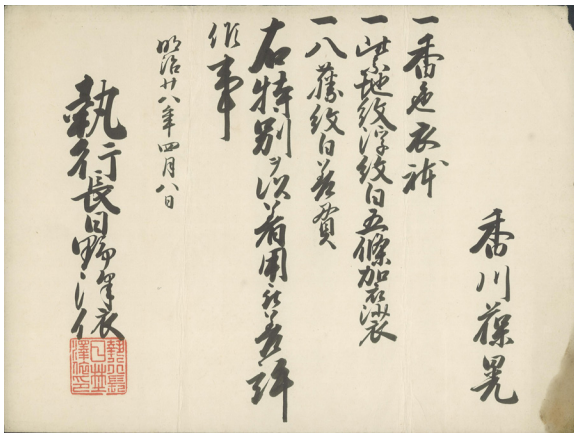 香川葆晃
一香色衣
一紫地紋浮紋白五條袈裟
一八藤紋白差貫
右特別ヲ以着用被差許
候事
明治廿八年四月八日
執行長日野澤依